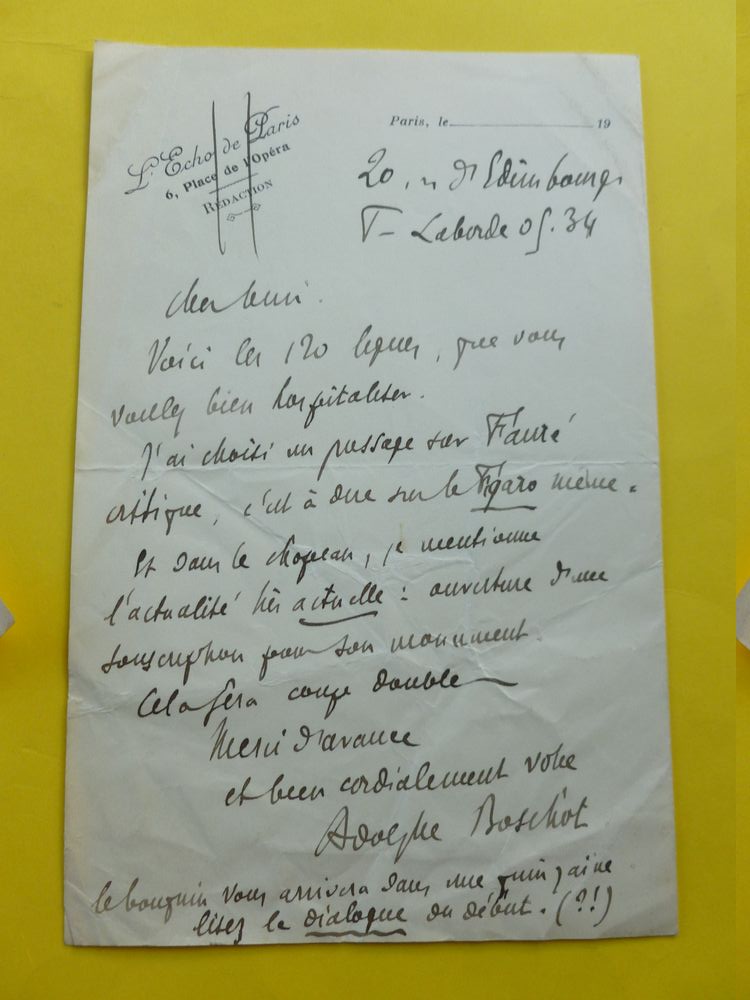 L'Echo de Paris
6, Place de l'Opéra
RÉDACTION
Paris, le 19
20, r. d'Edimbourg
T- Laborde 05.34
Cher ami.
Voici les 120 lignes, que vous
voulez bien hospitaliser.
J'ai choisi un passage sur Fauré
critique, c'est à dire sur le Figaro même.
Et dans le chapeau, je mentionne
l'actualité très actuelle : ouverture d'une
souscription pour son monument.
Cela fera coup double
Merci d'avance
et bien cordialement votre
Adolphe Boschot
le bouquin vous arrivera dans une quinzaine
lisez le dialogue du début. (?!)